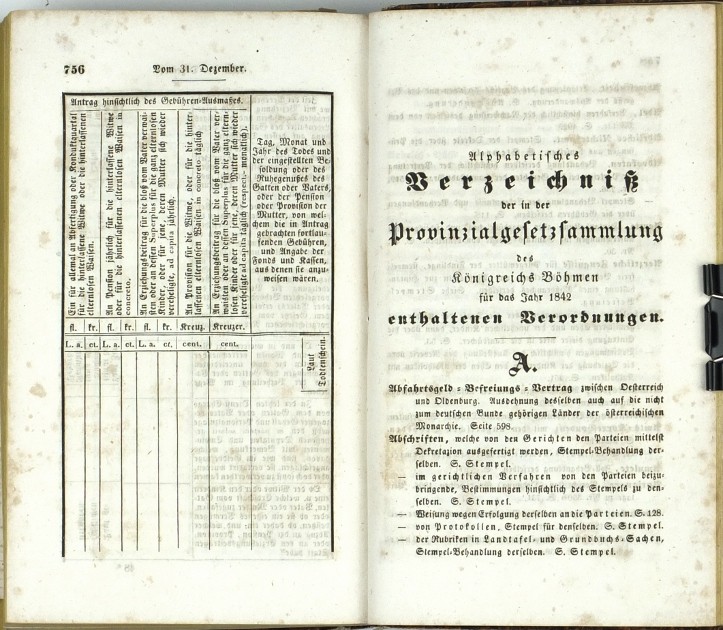 756
Vom 31. Dezember.
Antrag hinsichtlich des Gebühren-Ausmaßes.
Ein für allemal an Abfertigung oder Konduktquartal
für die hinterlassene Witwe oder die hinterlassenen
elternlosen Waisen.
An Pension jährlich für die hinterlassene Witwe
oder für die hinterlassenen elternlosen Waisen in
concreto.
An Erziehungsbeitrag für die bloß vom Vater verwai-
sten oder an dessen Superplus für die ganz elternlosen
Kinder, oder für jene, deren Mutter sich wieder
vereheligte, ad capita jährlich.
An Provision für die Witwe, oder für die hinter-
lassenen elternlosen Waisen in concreto täglich
An Erziehungsbeitrag für die bloß vom Vater ver-
waisten oder an dessen Superplus für die ganz eltern-
losen Kinder oder für jene, deren Mutter sich wieder
vereheligte ad capita täglich (respect. monatlich).
Tag, Monat und
Jahr des Todes und
der eingestellten Be-
soldung oder des
Ruhegenußes des
Gatten oder Vaters,
oder der Pension
oder Provision der
Mutter, von wel-
chem die in Antrag
gebrachten fortlau-
fenden Gebühren,
und Angabe der
Fonds und Kassen,
aus denen sie anzu-
weisen wären.
fl. kr. fl. kr. fl. kr. Kreuz. Kreuzer.
L. a. ct. L. a. ct. L. a. ct. cent. cent.
Laut
Todtenschein.
Alphabetisches
Verzeichniß
der in der
Provinzialgesetzsammlung
des
Königreichs Böhmen
für das Jahr 1842
enthaltenen Verordnungen.
A.
Abfahrtsgeld-Befreiungs-Vertrag zwischen Oesterreich
und Oldenburg. Ausdehnung desselben auch auf die nicht
zum deutschen Bunde gehörigen Länder der österreichischen
Monarchie. Seite 598.
Abschriften, welche von den Gerichten den Parteien mittelst
Dekretazion ausgefertigt werden, Stempel-Behandlung der-
selben. S. Stempel.
— im gerichtlichen Verfahren von den Parteien beizu-
bringende, Bestimmungen hinsichtlich des Stempels zu den-
selben. S. Stempel.
— Weisung wegen Erfolgung derselben an die Parteien. S. 128.
— von Protokollen, Stempel für denselben. S. Stempel.
— der Rubriken in Landtafel- und Grundbuchs-Sachen,
Stempel-Behandlung derselben. S. Stempel.